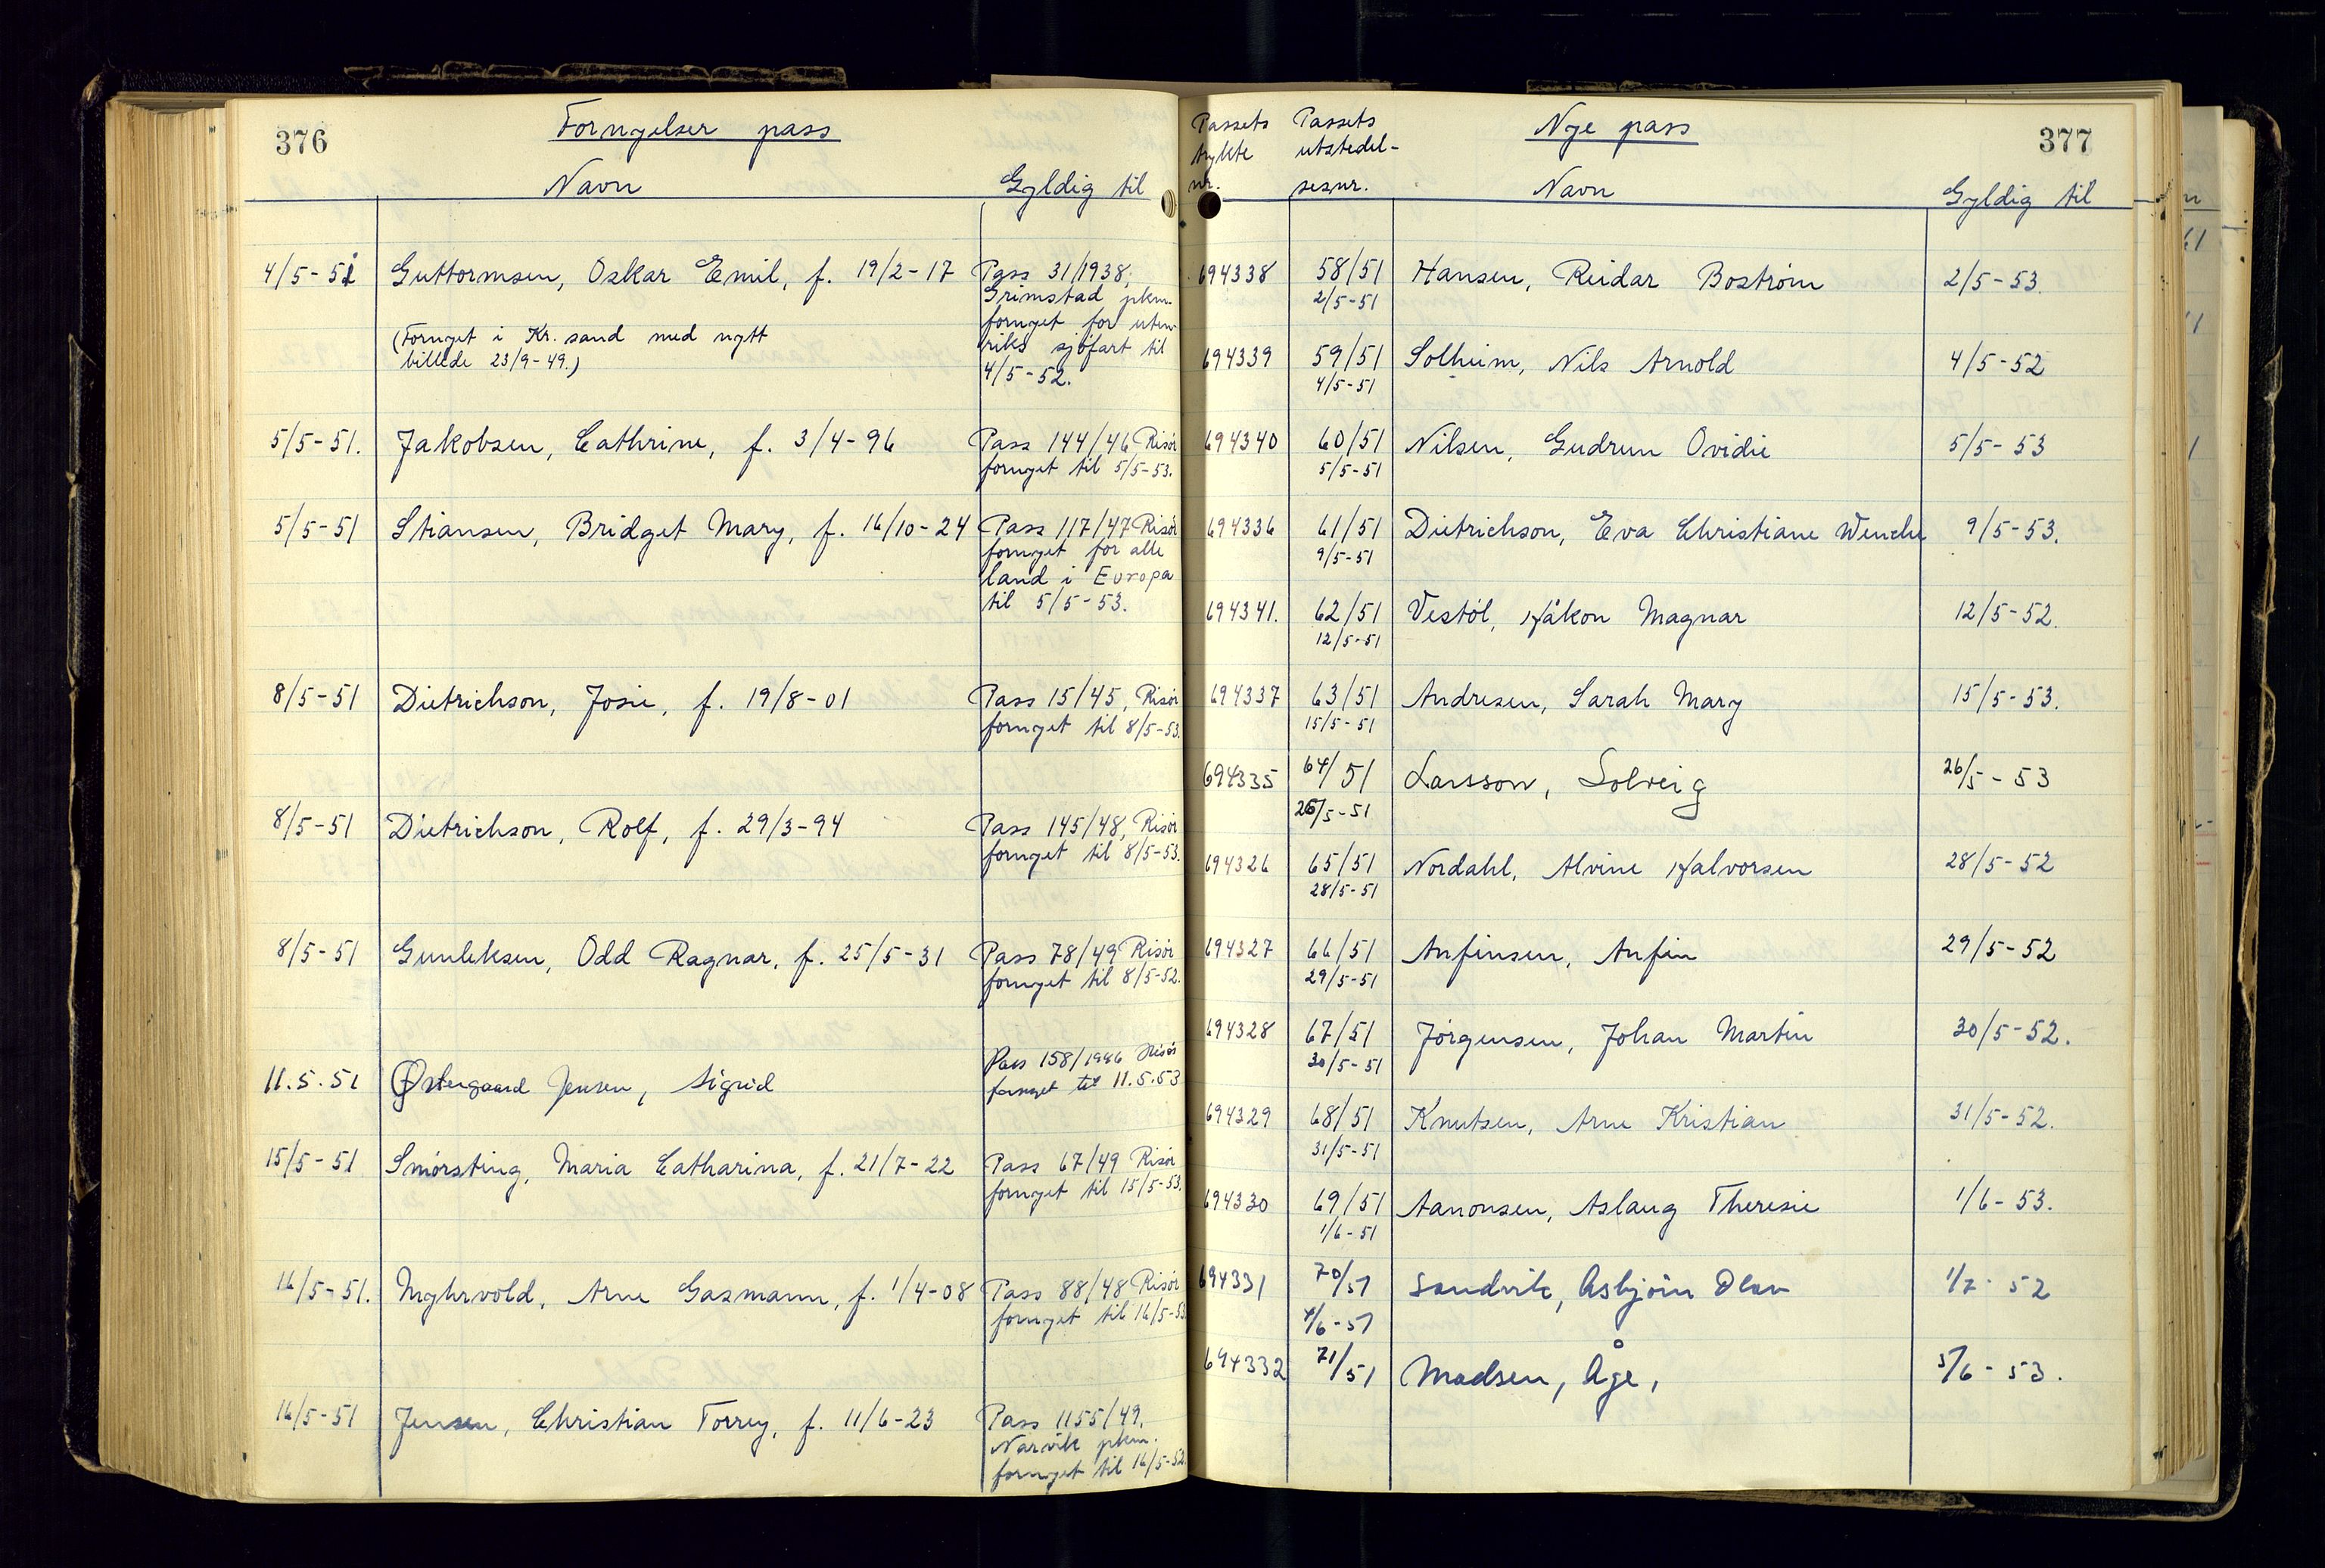 376
Fornyelser pass
Navn
Gyldig til
4/5-51
Guttormsen, Oskar Emil, f. 19/2-17
Pass 31/1938,
Grimstad pkm.
fornyet for uten-
riks sjøfart til
4/5-52.
(Fornyet i Kr.sand med nytt
billede 23/9-49.)
5/5-51.
Jakobsen, Cathrine, f. 3/4-96
Pass 144/46 Risør
fornyet til 5/5-53.
5/5-51
Stiansen, Bridget Mary, f. 16/10-24
Pass 117/47 Risør
fornyet for alle
land i Europa
til 5/5-53.
8/5-51
Dietrichson, Josie, f. 19/8-01
Pass 15/45, Risør
fornyet til 8/5-53.
8/5-51
Dietrichson, Rolf, f. 29/3-94
Pass 145/48, Risør
fornyet til 8/5-53.
8/5-51
Gunleksen, Odd Ragnar, f. 25/5-31
Pass 78/49 Risør
fornyet til 8/5-52.
11.5.51
Østergaard Jensen, Sigrid
Pass 158/1946 Risør
fornyet til 11.5.53
15/5-51
Smørsting, Maria Catharina, f. 21/7-22
Pass 67/49 Risør
fornyet til 15/5-53.
16/5-51.
Myhrvold, Arne Gasmann, f. 1/4-08
Pass 88/48 Risør
fornyet til 16/5-53
16/5-51
Jensen, Christian Torrey, f. 11/6-23
Pass 1155/49,
Narvik pkm.
fornyet til 16/5-52.
377
Passets
trykte
nr.
Passets
utstedel-
sesnr.
Nye pass
Navn
Gyldig til
694338 58/51 Hansen, Reidar Bostrøm 2/5-53.
2/5-51
694339 59/51 Solheim, Nils Arnold 4/5-52
4/5-51
694340 60/51 Nilsen, Gudrun Ovidie 5/5-53
5/5-51
694336 61/51 Dietrichson, Eva Christiane Wenche 9/5-53.
9/5-51
694341. 62/51 Vestøl, Håkon Magnar 12/5-52.
12/5-51
694337 63/51 Andresen, Sarah Mary 15/5-53.
15/5-51
694335 64/51 Larsson, Solveig 26/5-53
26/5-51
694326 65/51 Nordahl, Alvine Halvorsen 28/5-52
28/5-51
694327 66/51 Anfinsen, Anfin 29/5-52
29/5-51
694328 67/51 Jørgensen, Johan Martin 30/5-52.
30/5-51
694329 68/51 Knutsen, Arne Kristian 31/5-52.
31/5-51
694330 69/51 Aanonsen, Aslaug Theresie 1/6-53.
1/6-51
694331 70/51 Sandvik, Asbjørn Olav 1/7-52
4/6-51
694332 71/51 Madsen, Åge, 5/6-53.